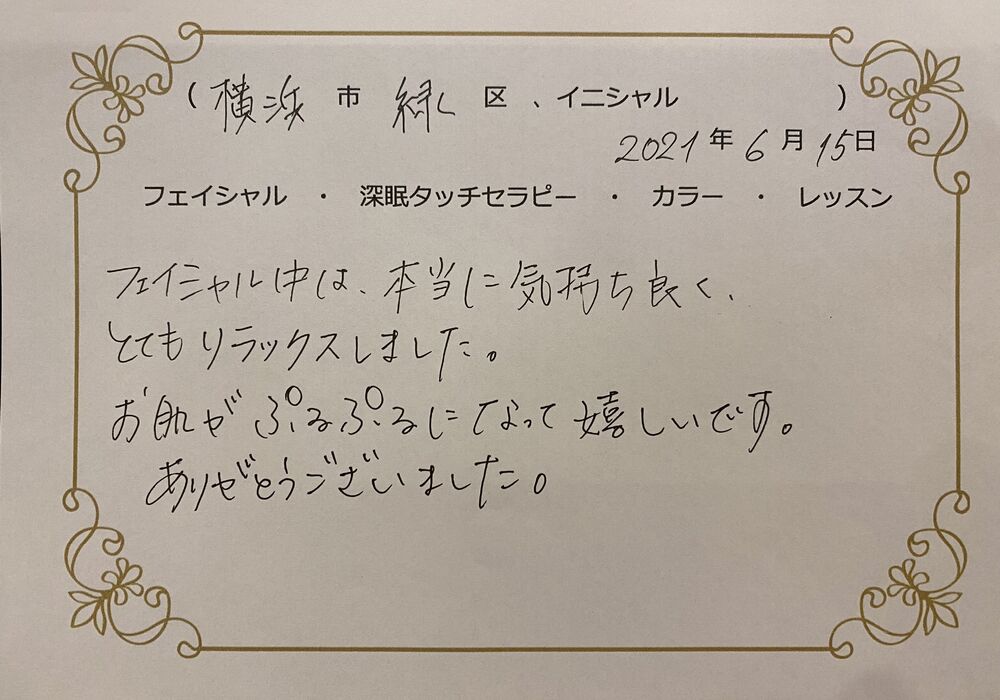 (横浜市 緑区、イニシャル )
2021年6月15日
フェイシャル ・ 深眠タッチセラピー ・ カラー ・ レッスン
フェイシャル中は、本当に気持ち良く、
とてもリラックスしました。
お肌がぷるぷるになって嬉しいです。
ありがとうございました。